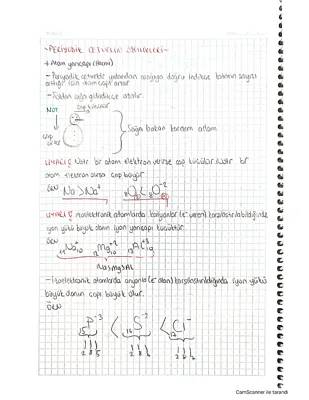 -PERİYODİK CETVELİN ÖZELLİKLERİ-
+ Atom yarıçapı (Hacmi)
- Periyodik cetvelde yukarıdan aşağıya doğru inildikçe katman sayısı
arttığı için atom çapı artar.
- Soldan sağa gidildikçe azalır.
NOT
çap
artar
Sağa bakan kardan adam
UYARI: Nötr bir atom elektron verirse çap küçülür. Nötr bir
atom elektron alırsa çap büyür.
ÖRN Na > Na⁺ ₈O < ₈O⁻²
UYARI: İzoelektronik atomlarda katyonlar (e⁻ veren) karşılaştırıldığında
iyon yükü büyük olanın iyon yarıçapı küçüktür.
ÖRN ₁₁Na₁₀⁺ ₁₂Mg₁₀⁺² ₁₃Al₁₀⁺³
Na > Mg > Al
- İzoelektronik atomlarda anyonlar (e⁻ alan) karşılaştırıldığında iyon yükü
büyük olanın çapı büyük olur.
ÖRN
₁₅P⁻³ < ₁₆S⁻² < ₁₇Cl⁻
2 8 8 2 8 8 2 8 8
CamScanner ile tarandı